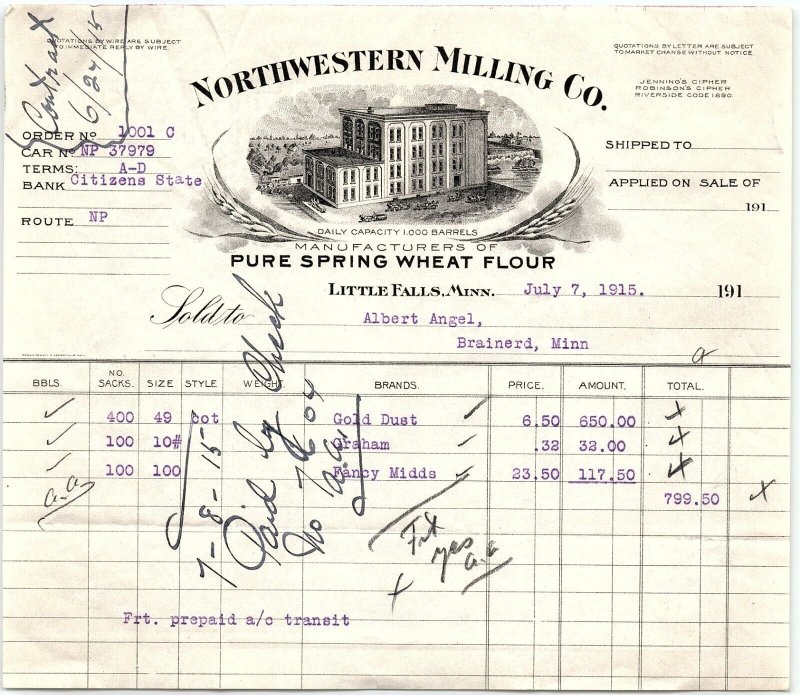 Contract
6/24/15
QUOTATIONS BY WIRE ARE SUBJECT
TO IMMEDIATE REPLY BY WIRE.
NORTHWESTERN MILLING CO.
QUOTATIONS BY LETTER ARE SUBJECT
TO MARKET CHANGE WITHOUT NOTICE.
JENNING'S CIPHER
ROBINSON'S CIPHER
RIVERSIDE CODE 1890
ORDER No 1001 C
CAR No NP 37979
TERMS: A-D
BANK Citizens State
ROUTE NP
SHIPPED TO
APPLIED ON SALE OF
191
DAILY CAPACITY 1,000 BARRELS
MANUFACTURERS OF
PURE SPRING WHEAT FLOUR
LITTLE FALLS, MINN. July 7, 1915. 191
Sold to Albert Angel,
Brainerd, Minn
a
BBLS NO. SACKS. SIZE STYLE WEIGHT BRANDS PRICE. AMOUNT. TOTAL.
400 49 cot Gold Dust 6.50 650.00
100 10# Graham .32 32.00
100 100 Fancy Midds 23.50 117.50
799.50
a.a.
7-8-15
Paid by Check
No 7604
a.a.
Frt
yes
a.a
Frt. prepaid a/c transit